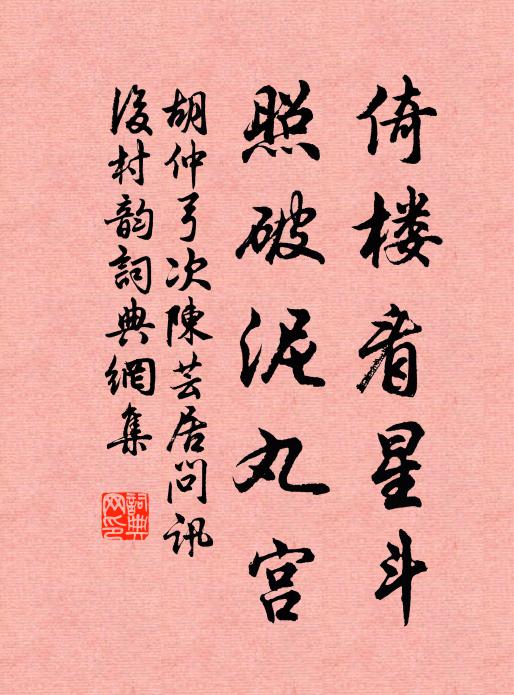 倚楼看星斗
照破泥丸宫
胡仲弓次陳芸居問訊
後村韵詞典網集
詞典网印